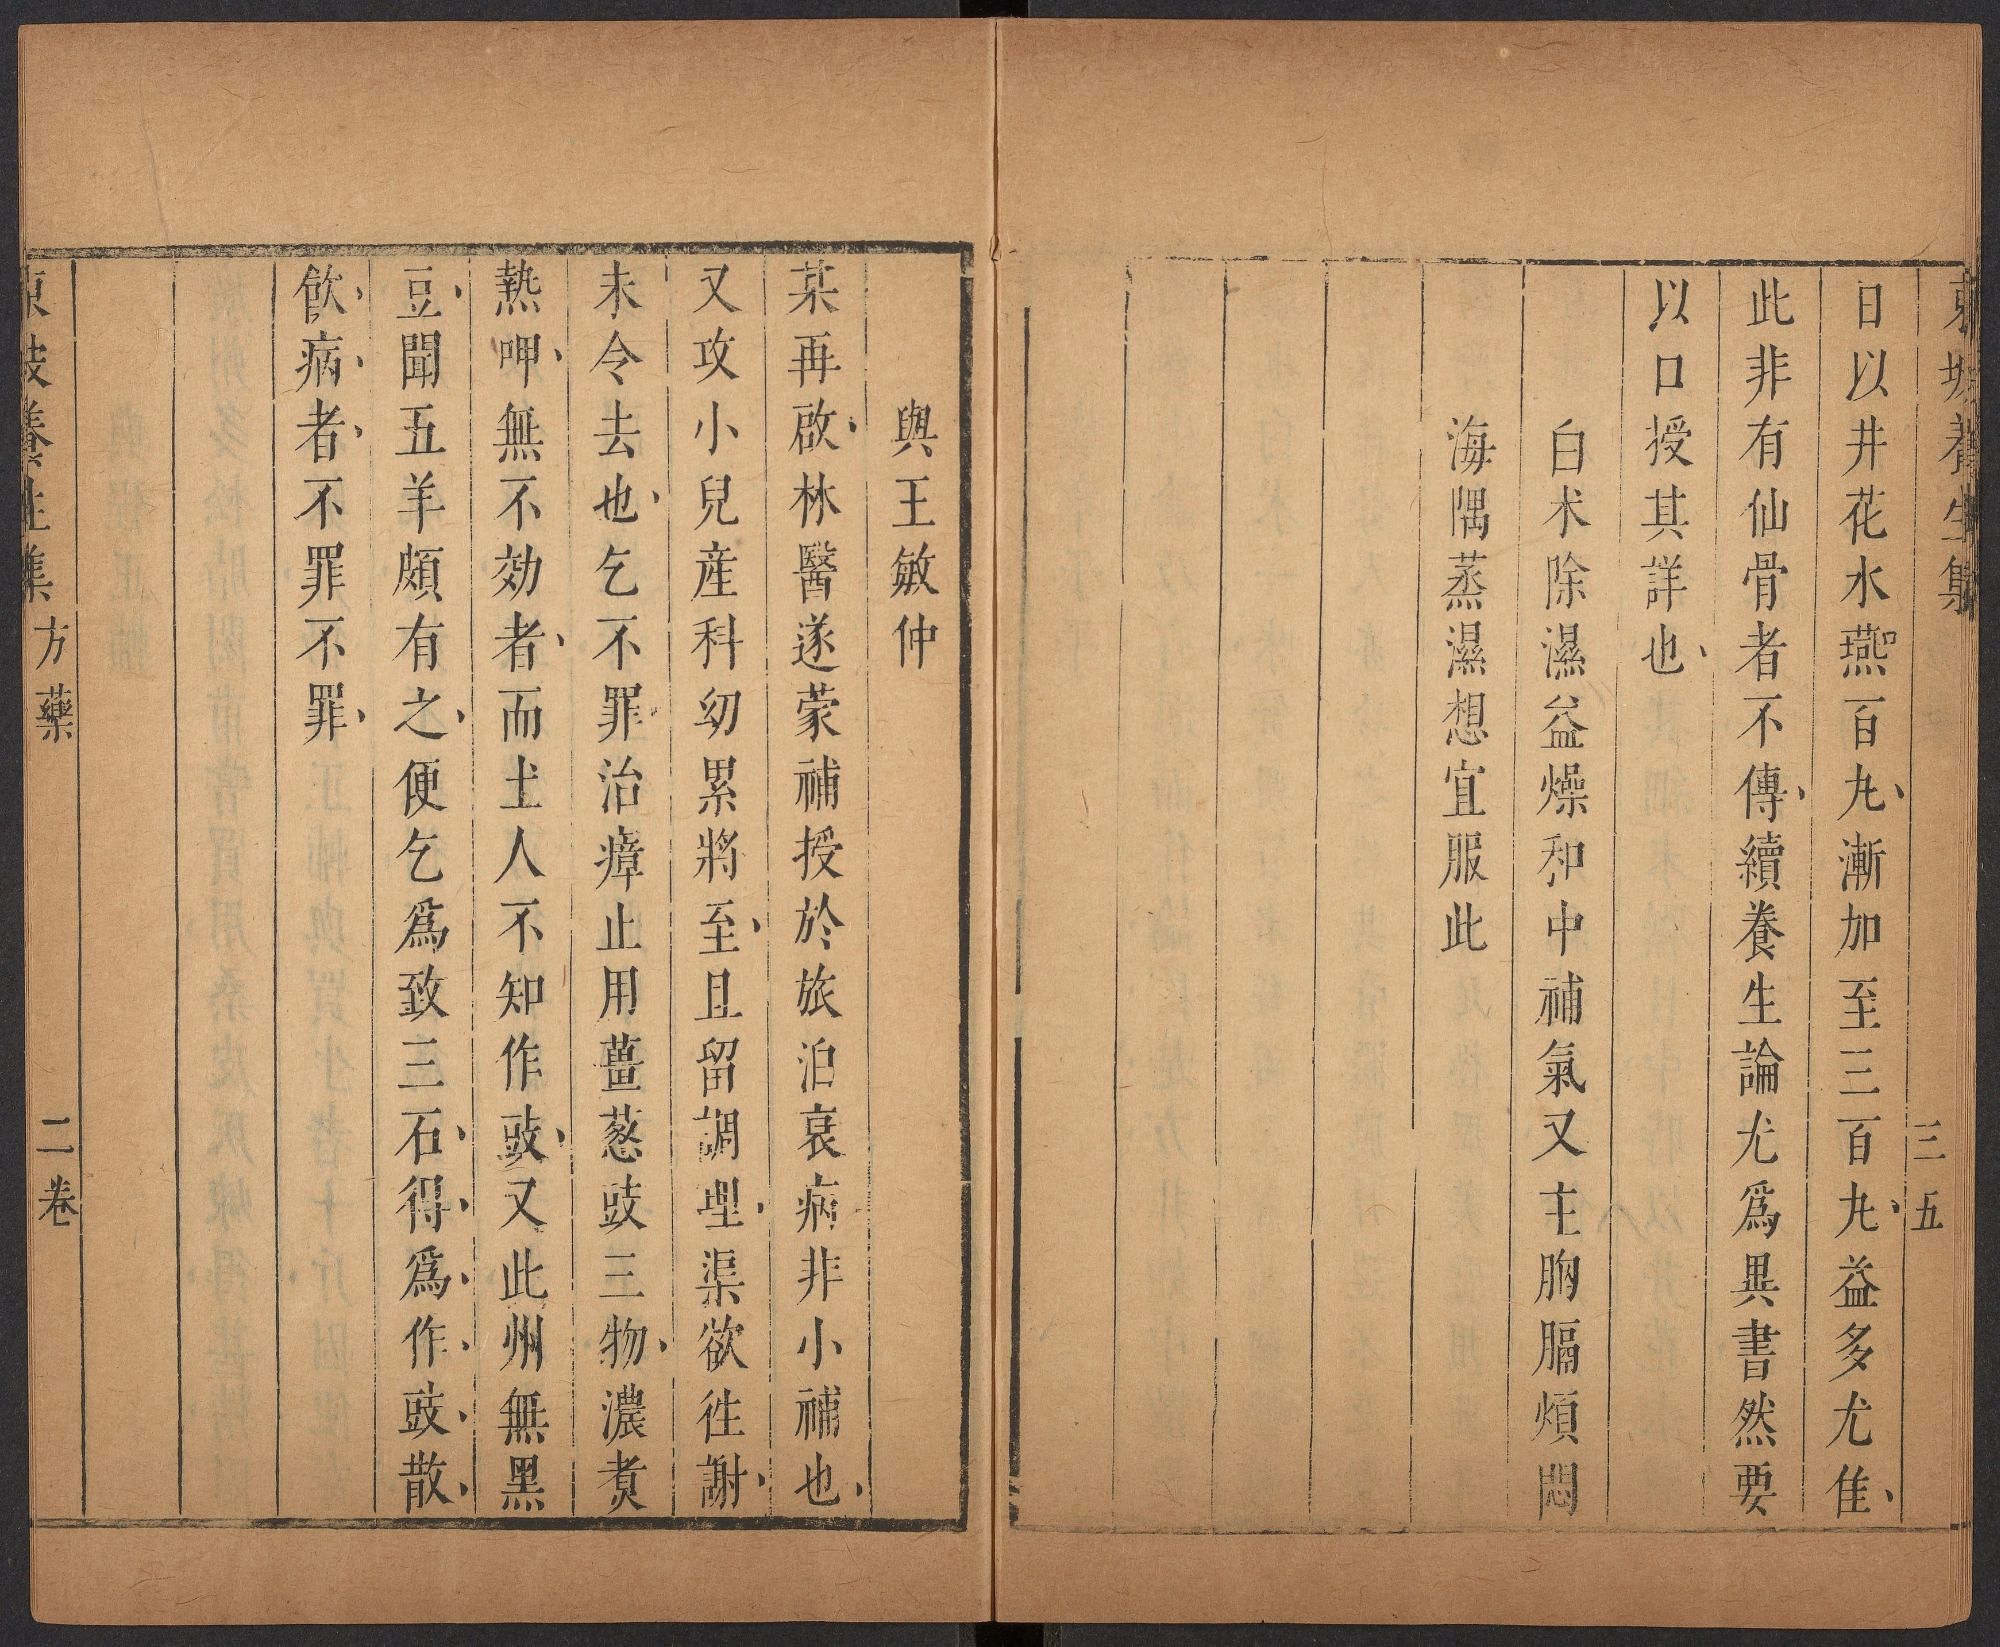 東坡養生集
三五
日以井花水燕百丸漸加至三百丸益多尤佳
此非有仙骨者不傳續養生論尤爲異書然要
以口授其詳也
白术除濕益燥和中補氣又主胸膈煩悶
海隅蒸濕想宜服此
與王敏仲
某再啟林醫遂蒙補授於旅泊衰病非小補也
又攻小兒産科幼累將至且留調理渠欲徃謝
未令去也乞不罪治瘴止用薑葱豉三物濃煑
熱呷無不効者而土人不知作豉又此州無黑
豆聞五羊頗有之便乞爲致三石得爲作豉散
飮病者不罪不罪
東坡養生集
方藥
二卷